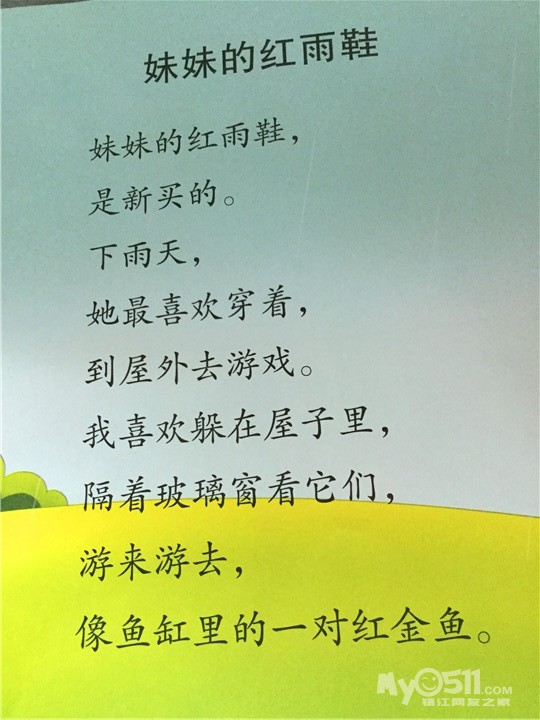 妹妹的红雨鞋
妹妹的红雨鞋，
是新买的。
下雨天，
她最喜欢穿着，
到屋外去游戏。
我喜欢躲在屋子里，
隔着玻璃窗看它们，
游来游去，
像鱼缸里的一对红金鱼。
My0511.COM
镇江网友之家